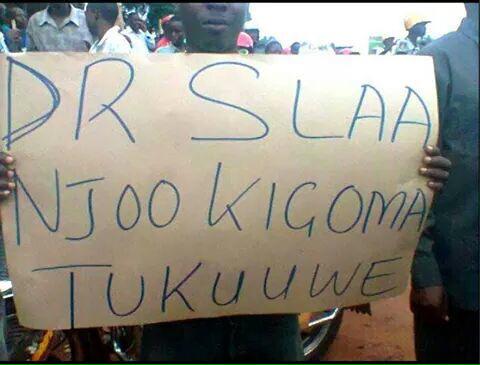 DR SLAA
NJOO KIGOMA
TUKUUWE